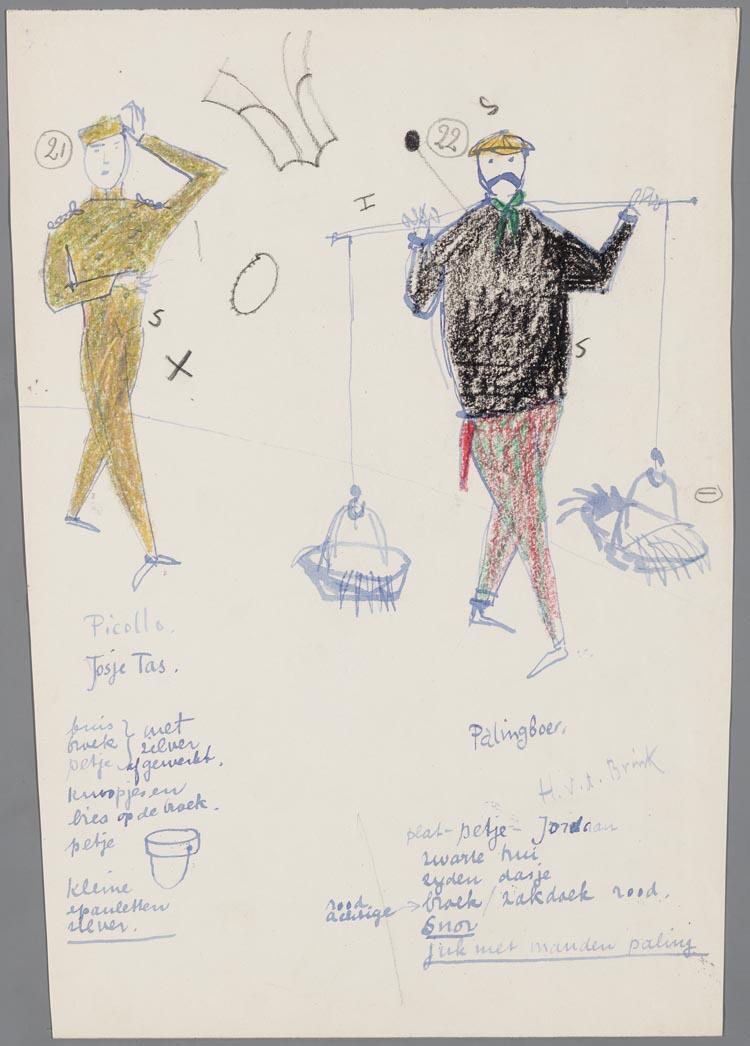 21
S
22
I
S
X
S
Picollo.
Josje Tas.
buis } met
broek } zilver
petje } afgewerkt.
knoopjes en
bies op de broek.
petje
kleine
epauletten
zilver.
Palingboer.
H.v.d. Brink
plat-petje - Jordaan
zwarte trui
zyden dasje
rood achtige → broek / zakdoek rood.
Snor
juk met manden paling